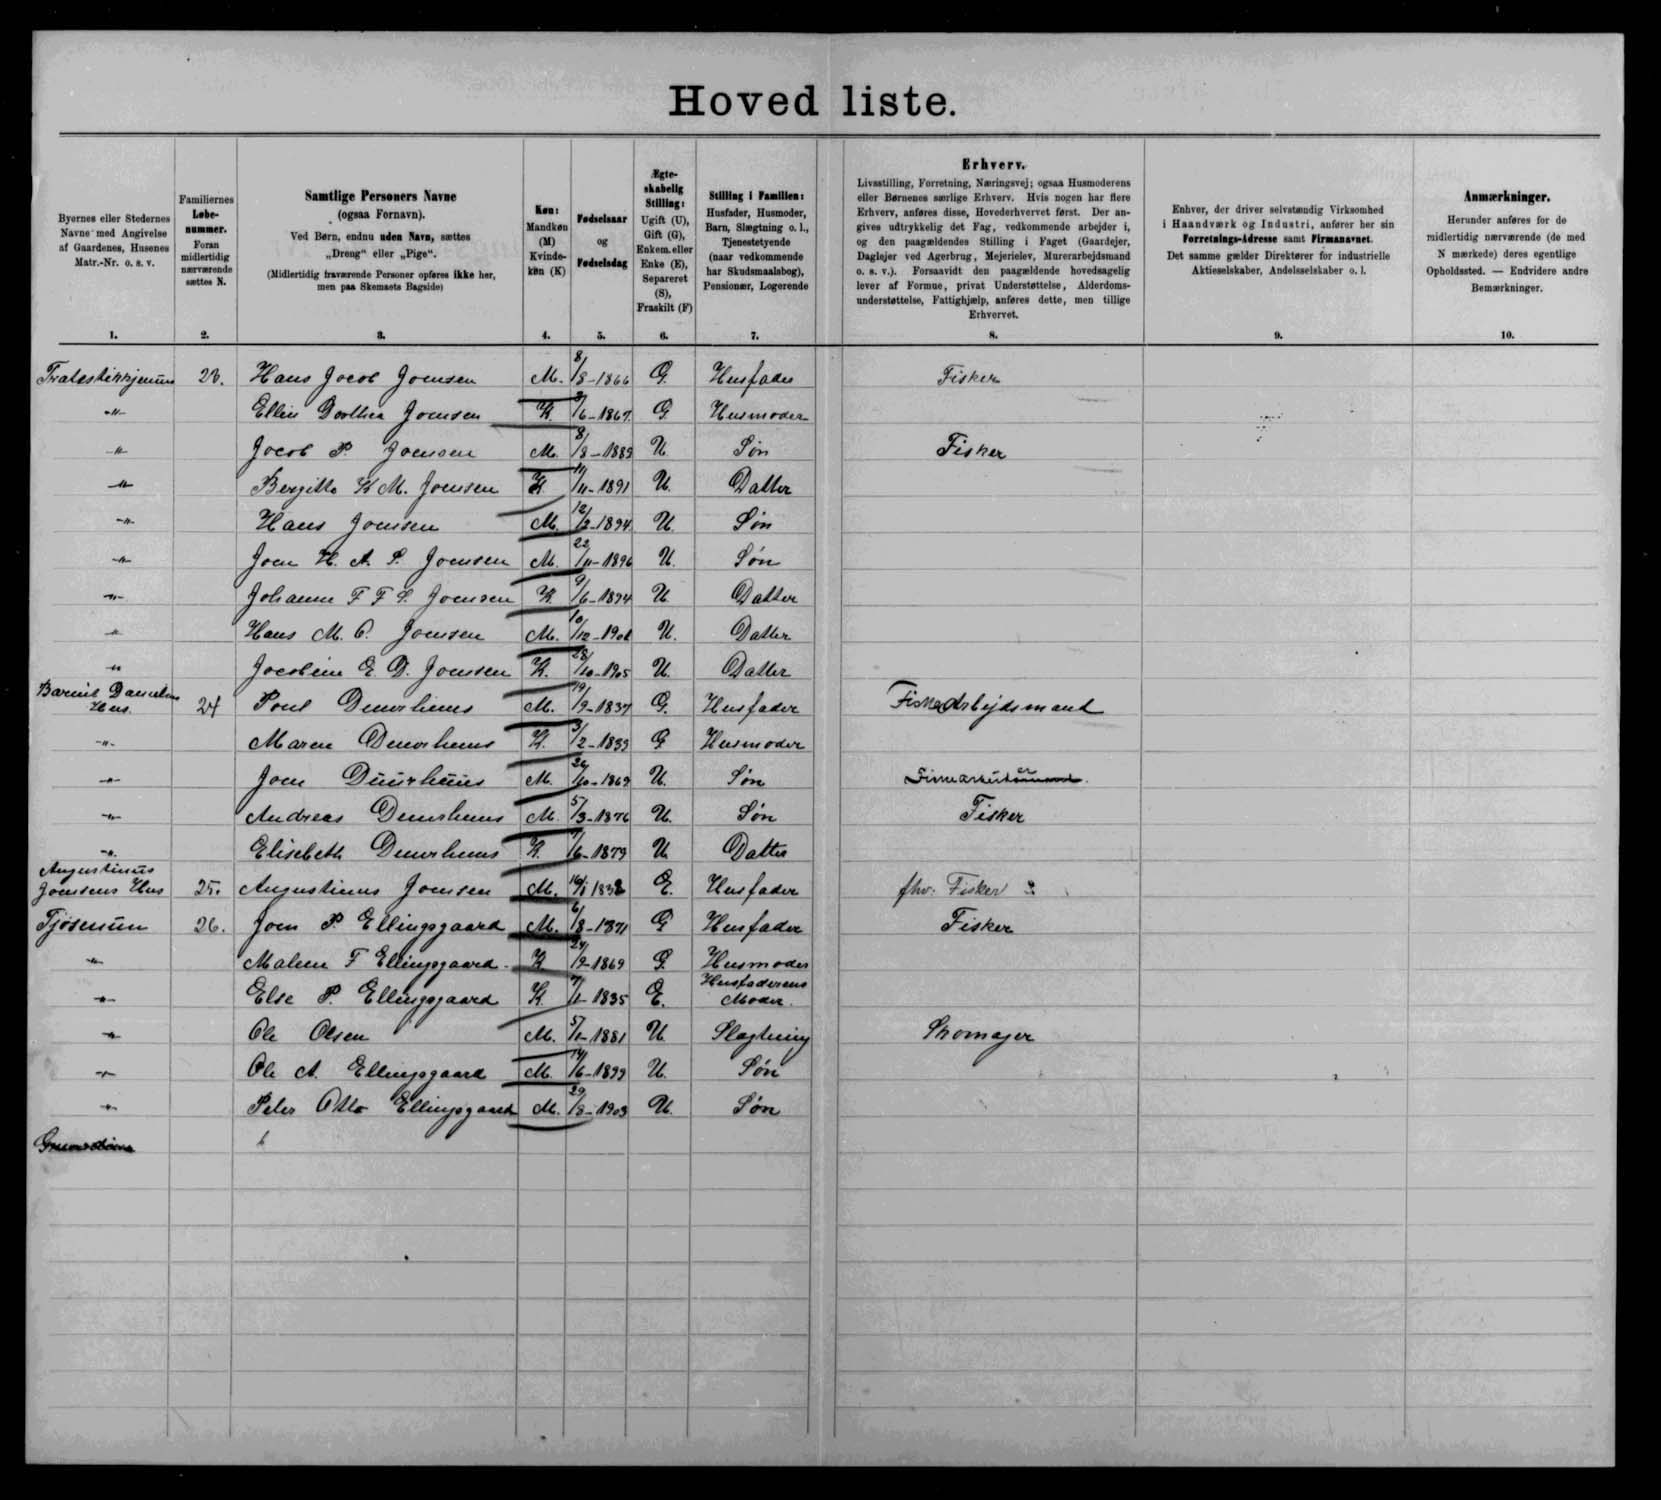 Hoved liste.
Byernes eller Stedernes Navne med Angivelse af Gaardenes, Husenes Matr.-Nr. o. s. v.
Familiernes Løbenummer. Foran midlertidig nærværende sættes N.
Samtlige Personers Navne (ogsaa Fornavn). Ved Børn, endnu uden Navn, sættes „Dreng“ eller „Pige“. (Midlertidig fraværende Personer opføres ikke her, men paa Skemaets Bagside)
Køn: Mandkøn (M) Kvindekøn (K)
Fødselsaar og Fødselsdag
Ægteskabelig Stilling: Ugift (U), Gift (G), Enkem. eller Enke (E), Separeret (S), Fraskilt (F)
Stilling i Familien: Husfader, Husmoder, Barn, Slægtning o. l., Tjenestetyende (naar vedkommende har Skudsmaalsbog), Pensionær, Logerende
Erhverv. Livsstilling, Forretning, Næringsvej; ogsaa Husmoderens eller Børnenes særlige Erhverv. Hvis nogen har flere Erhverv, anføres disse, Hovederhvervet først. Der angives udtrykkelig det Fag, vedkommende arbejder i, og den paagældendes Stilling i Faget (Gaardejer, Daglejer ved Agerbrug, Mejerielev, Murerarbejdsmand o. s. v.). Forsaavidt den paagældende hovedsagelig lever af Formue, privat Understøttelse, Alderdomsunderstøttelse, Fattighjælp, anføres dette, men tillige Erhvervet.
Enhver, der driver selvstændig Virksomhed i Haandværk og Industri, anfører her sin Forretnings-Adresse samt Firmanavnet. Det samme gælder Direktører for industrielle Aktieselskaber, Andelsselskaber o. l.
Anmærkninger. Herunder anføres for de midlertidig nærværende (de med N mærkede) deres egentlige Opholdssted. — Endvidere andre Bemærkninger.
1. 2. 3. 4. 5. 6. 7. 8. 9. 10.
23. Hans Jocob Joensen M. 8/8-1866 G. Husfader Fisker
-"- Ellin Dorthea Joensen K. /6-1867. G. Husmoder
-"- Jocob P. Joensen M. 8/8-1889 U. Søn Fisker
-"- Bergitte K M. Joensen K. 11/11-1891 U. Datter
-"- Hans Joensen M. 12/2-1894 U. Søn
-"- Joen H. A. S. Joensen M. 22/11-1896 U. Søn
-"- Johanne F F S. Joensen K. 9/6-1894 U. Datter
-"- Hans M. C. Joensen M. 10/12-1901 U. Datter
-"- Jocobine E D. Joensen K. 28/10-1905 U. Datter
Hus. 24 Poul Duurhuus M. 19/9-1837 G. Husfader Fisker Arbejdsmand
-"- Maren Duurhuus K. 3/2-1839 G Husmoder
-"- Joen Duurhuus M. 26/10-1869 U. Søn
-"- Andreas Duurhuus M. 5/3-1876 U. Søn Fisker
-"- Elisebeth Duurhuus K. /6-1879 U. Datter
Augustinus
Joensens Hus 25. Augustinus Joensen M. 16/1 1838 E. Husfader fhv. Fisker
26. Joen P. Ellingsgaard M. 6/8-1871 G Husfader Fisker
-"- Malene F Ellingsgaard K. 24/9-1869 G. Husmoder
-"- Else P. Ellingsgaard K. 7/1-1835 E. Husfaderens Moder.
-"- Ole Olsen M. 5/1-1881 U Slagtning Skomager
-"- Ole A. Ellingsgaard M. 14/6-1899 U. Søn
-"- Peter Otto Ellingsgaard M. 29/8-1903 U. Søn